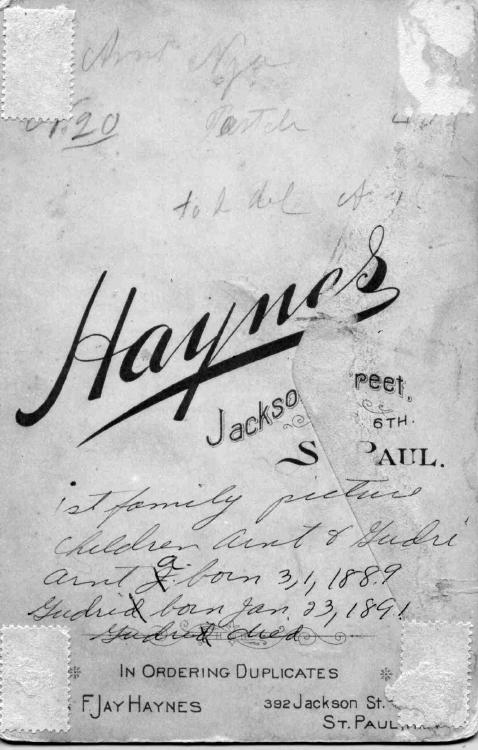 Arnt Nye
20
to h del
Haynes
Jackso reet,
6TH.
S PAUL.
1st family picture
children Arnt & Gudri
Arnt G. born 3, 1, 1889
Gudrid born Jan. 23, 1891
Gudrid died
IN ORDERING DUPLICATES
F JAY HAYNES 392 Jackson St.
ST. PAUL